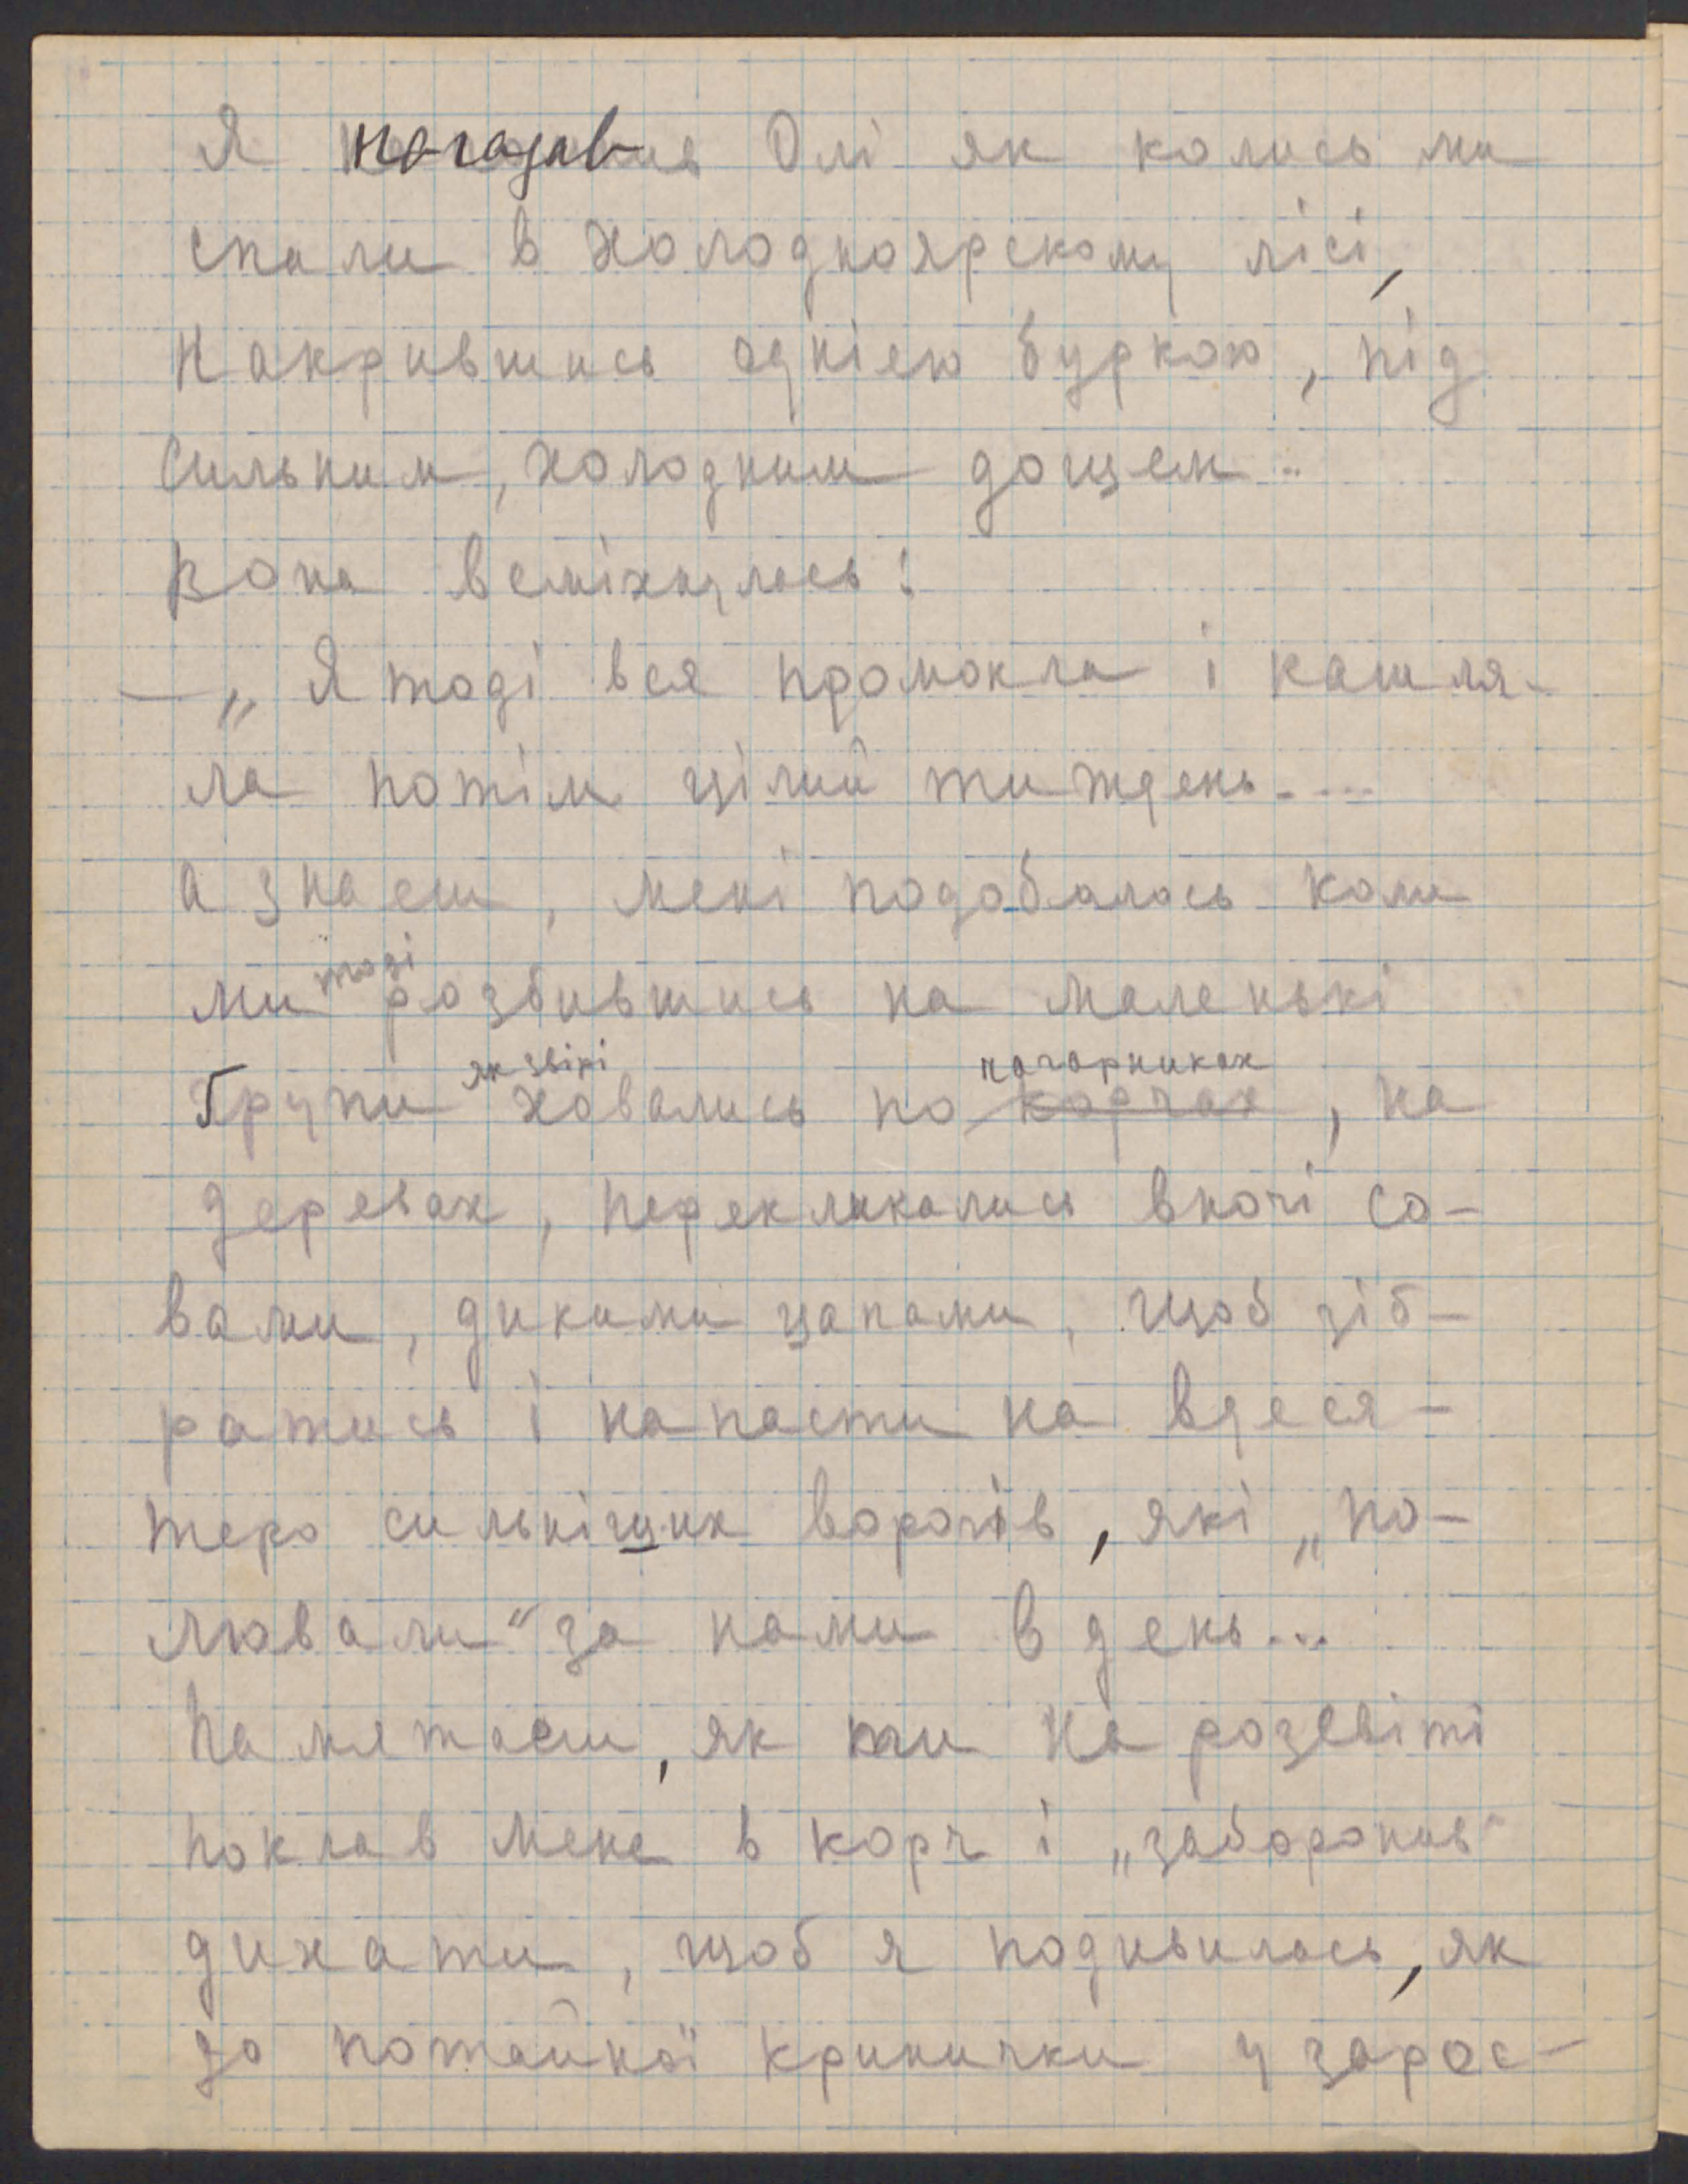 Я нагадав Олі як колись ми
спали в холодноярскому лісі,
накрившись однією буркою, під
сильним, холодним дощем..
Вона всміхнулась:
— „Я тоді вся промокла і кашля-
ла потім цілий тиждень....
а знаєш, мені подобалось коли
ми тоді розбившись на маленькі
ґрупи як звірі ховались по корчах чагарниках, на
деревах, перекликались вночі со-
вами, дикими цапами, щоб зіб-
ратись і напасти на вдеся-
теро сильніщих ворогів, які „по-
лювали" за нами в день...
Памятаєш, як ти на розсвіті
поклав мене в корч і „заборонив"
дихати, щоб я подивилась, як
до потайної кринички у зарос-